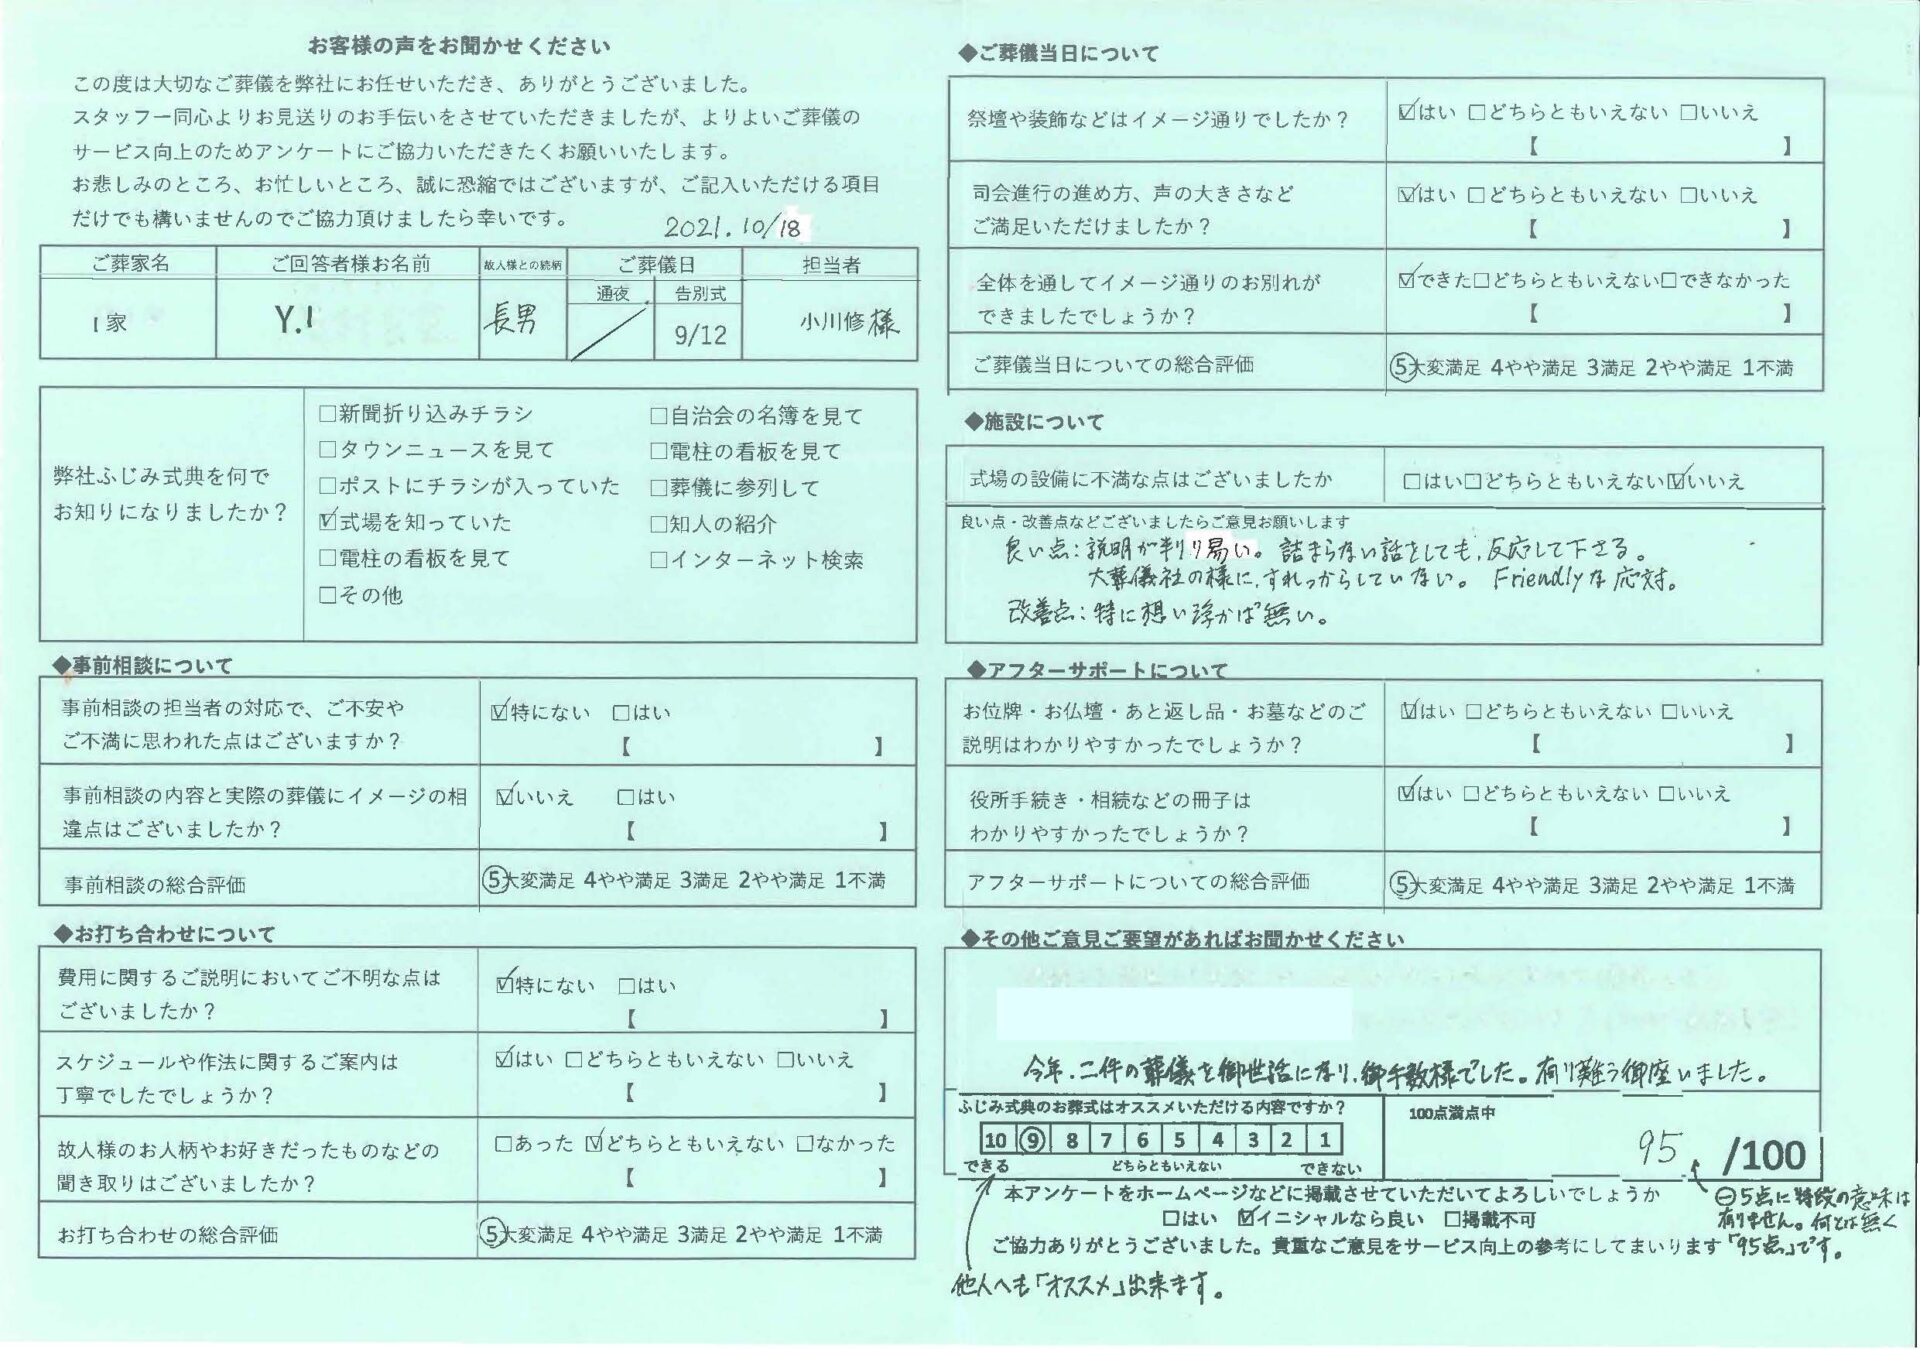 お客様の声をお聞かせください
この度は大切なご葬儀を弊社にお任せいただき、ありがとうございました。
スタッフ一同心よりお見送りのお手伝いをさせていただきましたが、よりよいご葬儀の
サービス向上のためアンケートにご協力いただきたくお願いいたします。
お悲しみのところ、お忙しいところ、誠に恐縮ではございますが、ご記入いただける項目
だけでも構いませんのでご協力頂けましたら幸いです。
2021.10/18
ご葬家名 ご回答者様お名前 故人様との続柄 ご葬儀日 担当者
通夜 告別式
I家 Y.I 長男 9/12 小川修様
弊社ふじみ式典を何で
お知りになりましたか？
□新聞折り込みチラシ □自治会の名簿を見て
□タウンニュースを見て □電柱の看板を見て
□ポストにチラシが入っていた □葬儀に参列して
☑式場を知っていた □知人の紹介
□電柱の看板を見て □インターネット検索
□その他
◆事前相談について
事前相談の担当者の対応で、ご不安や
ご不満に思われた点はございますか？
☑特にない □はい
【 】
事前相談の内容と実際の葬儀にイメージの相
違点はございましたか？
☑いいえ □はい
【 】
事前相談の総合評価 ⑤大変満足 4やや満足 3満足 2やや満足 1不満
◆お打ち合わせについて
費用に関するご説明においてご不明な点は
ございましたか？
☑特にない □はい
【 】
スケジュールや作法に関するご案内は
丁寧でしたでしょうか？
☑はい □どちらともいえない □いいえ
【 】
故人様のお人柄やお好きだったものなどの
聞き取りはございましたか？
□あった ☑どちらともいえない □なかった
【 】
お打ち合わせの総合評価 ⑤大変満足 4やや満足 3満足 2やや満足 1不満
◆ご葬儀当日について
祭壇や装飾などはイメージ通りでしたか？
☑はい □どちらともいえない □いいえ
【 】
司会進行の進め方、声の大きさなど
ご満足いただけましたか？
☑はい □どちらともいえない □いいえ
【 】
全体を通してイメージ通りのお別れが
できましたでしょうか？
☑できた□どちらともいえない□できなかった
【 】
ご葬儀当日についての総合評価 ⑤大変満足 4やや満足 3満足 2やや満足 1不満
◆施設について
式場の設備に不満な点はございましたか □はい□どちらともいえない☑いいえ
良い点・改善点などございましたらご意見お願いします
良い点：説明が判り易い。詰まらない話をしても、反応して下さる。
大葬儀社の様に、すれっからしていない。Friendlyな応対。
改善点：特に想い浮かば無い。
◆アフターサポートについて
お位牌・お仏壇・あと返し品・お墓などのご
説明はわかりやすかったでしょうか？
☑はい □どちらともいえない □いいえ
【 】
役所手続き・相続などの冊子は
わかりやすかったでしょうか？
☑はい □どちらともいえない □いいえ
【 】
アフターサポートについての総合評価 ⑤大変満足 4やや満足 3満足 2やや満足 1不満
◆その他ご意見ご要望があればお聞かせください
今年、二件の葬儀を御世話になり、御手数様でした。有り難う御座いました。
ふじみ式典のお葬式はオススメいただける内容ですか？
10 ⑨ 8 7 6 5 4 3 2 1
できる どちらともいえない できない
100点満点中
95 /100
本アンケートをホームページなどに掲載させていただいてよろしいでしょうか
□はい ☑イニシャルなら良い □掲載不可
ご協力ありがとうございました。貴重なご意見をサービス向上の参考にしてまいります
⊖5点に特段の意味は
有りません。何とは無く
「95点」です。
他人へも「オススメ」出来ます。